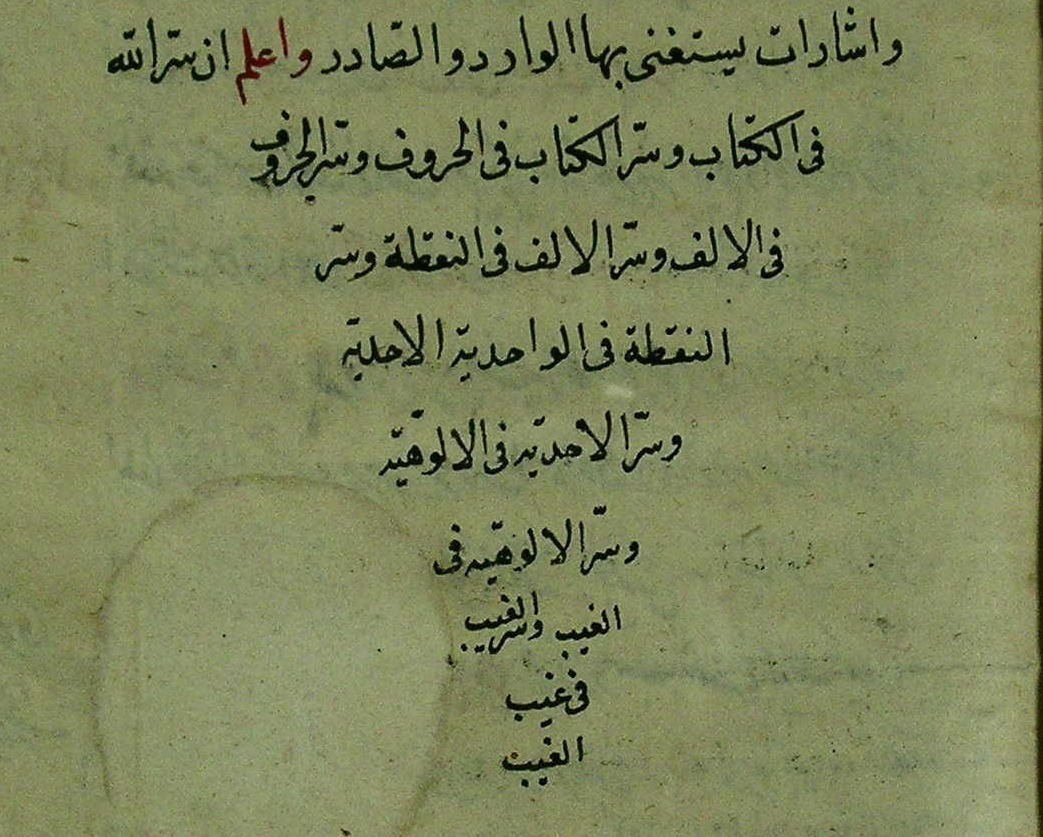 واشارات يستغنى بها الوارد والصادر واعلم ان سرّ الله
فى الكتاب وسرّ الكتاب فى الحروف وسرّ الحروف
فى الالف وسرّ الالف فى النقطة وسرّ
النقطة فى الواحدية الاحديّة
وسرّ الاحديّة فى الالوهيّة
وسرّ الالوهيّه فى
الغيب وسر الغيب
فى غيب
الغيب